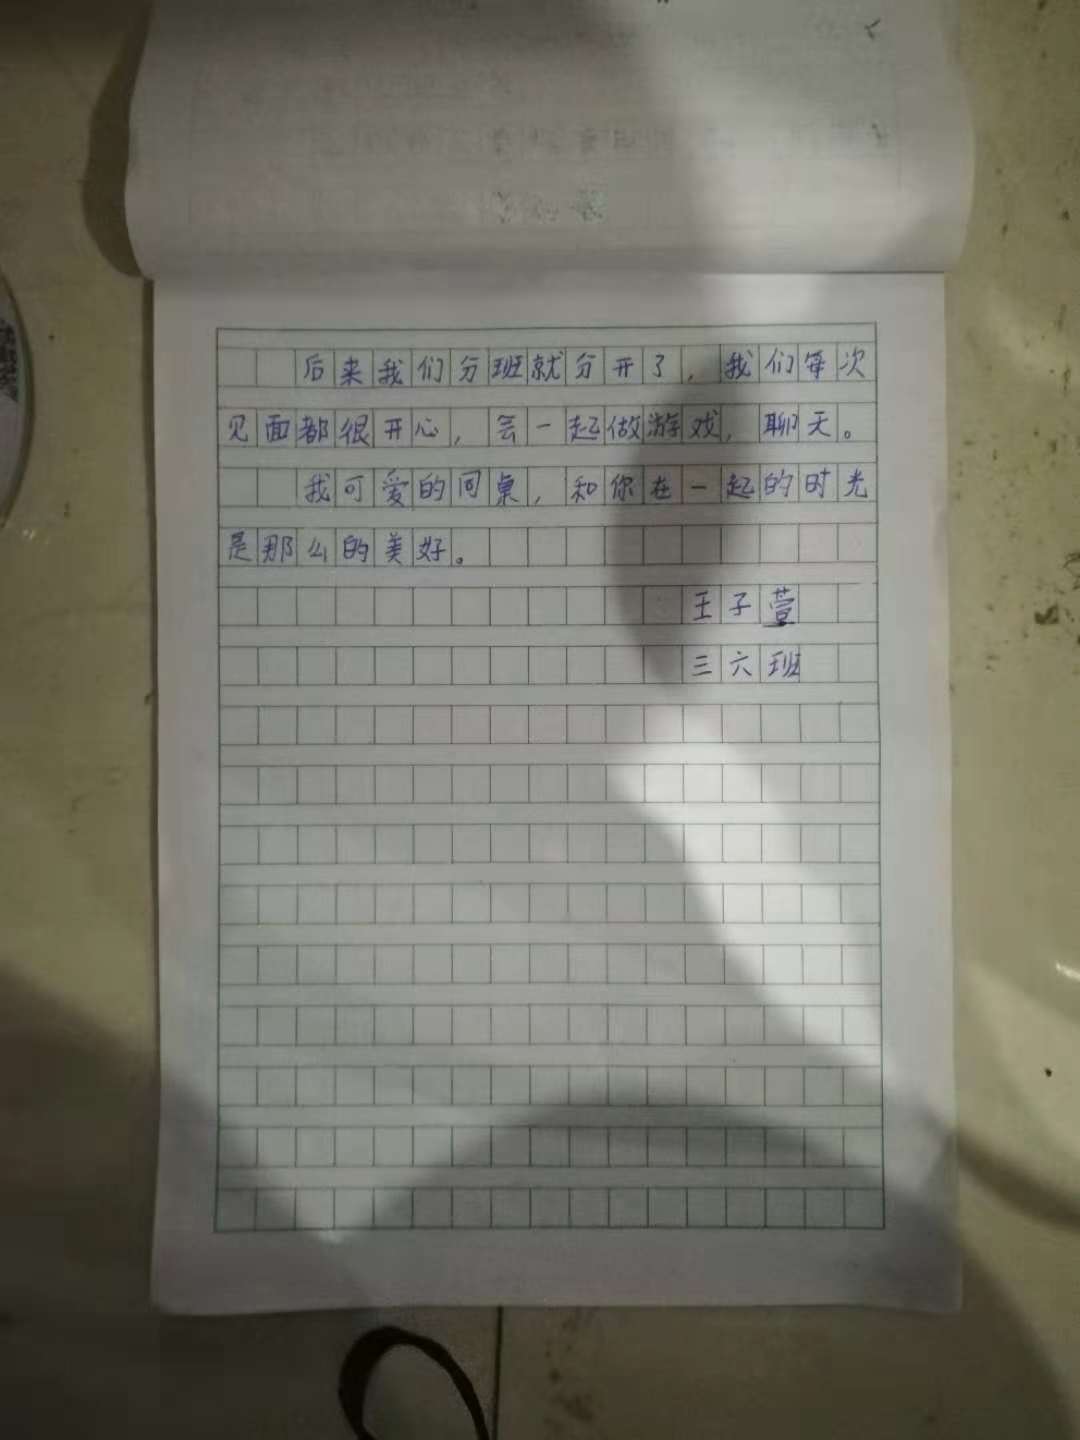 后来我们分班就分开了，我们每次
见面都很开心，会一起做游戏，聊天。
我可爱的同桌，和你在一起的时光
是那么的美好。
王子萱
三六班